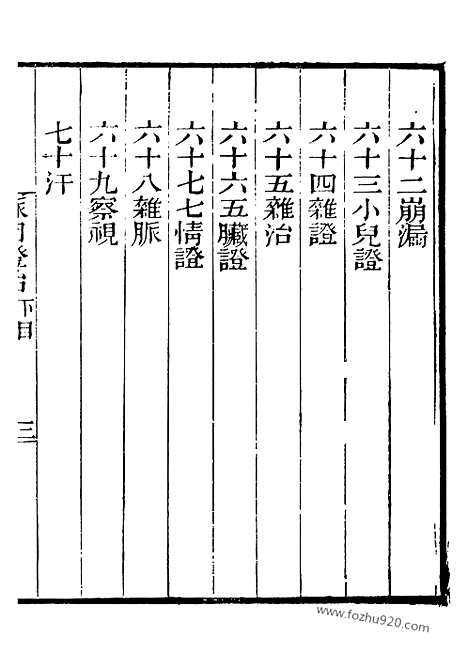 六十二崩漏
六十三小兒證
六十四雜證
六十五雜治
六十六五臟證
六十七七情證
六十八雜脈
六十九察視
七十汗
三
www.fozhu920.com